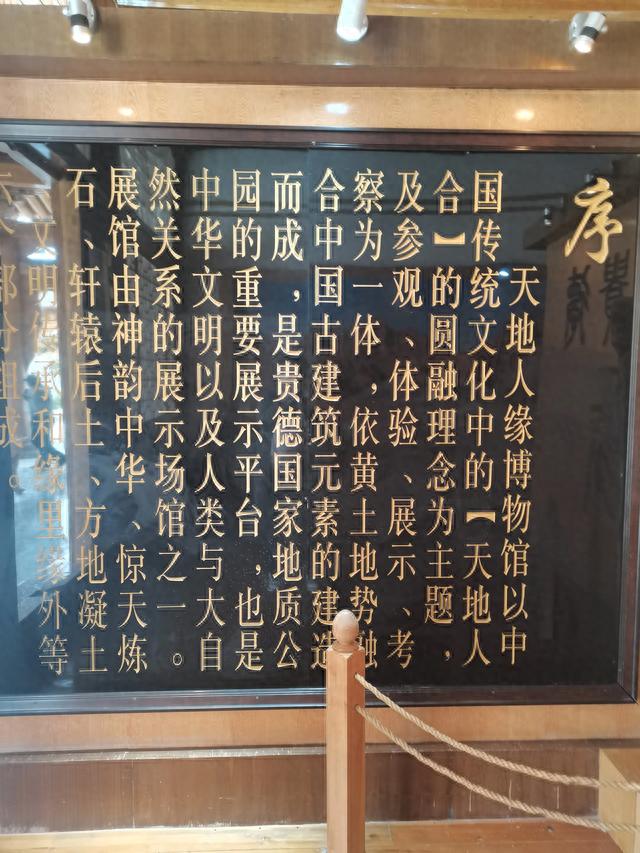 序
天地人缘博物馆以中
国传统文化中的【天地人
合】的圆融理念为主题，
及参观、体验、展示、考
察为一体，依黄土地势融
合中国古建筑元素的建造
而成，是贵德国家地质公
园的重要展示平台，也是
中华文明以及人类与大自
然关系的展示场馆之一。
展馆由神韵中华、惊天炼
石、轩辕后土、方地凝土
文明传承和缘里缘外等
六个部分组成。